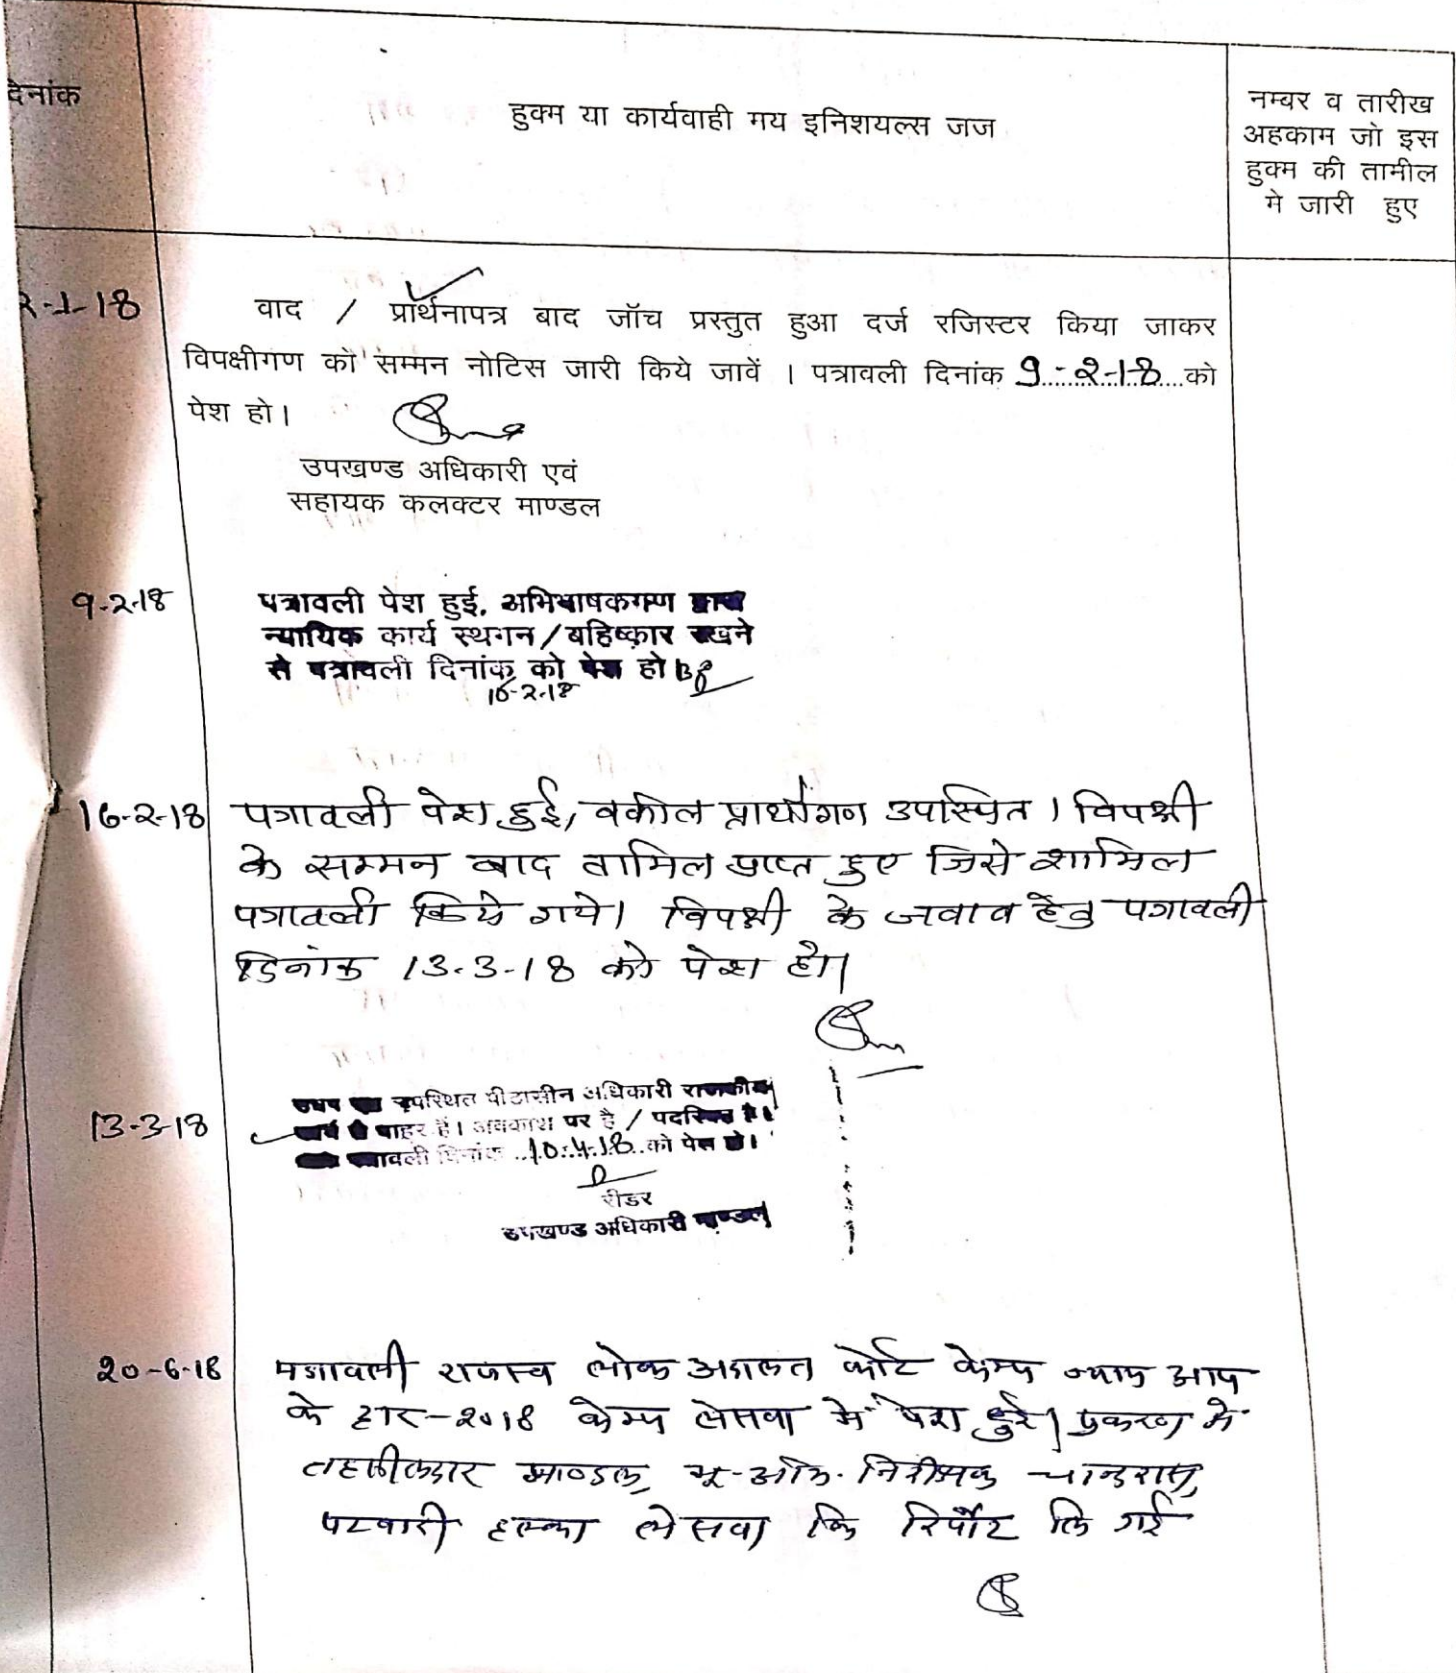 दिनांक
हुक्म या कार्यवाही मय इनिशयल्स जज
नम्बर व तारीख
अहकाम जो इस
हुक्म की तामील
मे जारी हुए
2-1-18
वाद / प्रार्थनापत्र बाद जॉच प्रस्तुत हुआ दर्ज रजिस्टर किया जाकर
विपक्षीगण को सम्मन नोटिस जारी किये जावें । पत्रावली दिनांक 9-2-18 को
पेश हो।
उपखण्ड अधिकारी एवं
सहायक कलक्टर माण्डल
9-2-18
पत्रावली पेश हुई. अभिभाषकगण द्वारा
न्यायिक कार्य स्थगन/बहिष्कार रखने
से पत्रावली दिनांक को पेश हो
16-2-18
16-2-18 पत्रावली पेश हुई, वकील प्रार्थीगण उपस्थित । विपक्षी
के सम्मन बाद तामिल प्राप्त हुए जिसे शामिल
पत्रावली किये गये। विपक्षी के जवाब हेतु पत्रावली
दिनांक 13-3-18 को पेश हो।
13-3-18
उपस्थित पीठासीन अधिकारी राजकीय
कार्य से बाहर है। अवकाश पर है / पदरिक्त है।
पत्रावली दिनांक 10.4.18 को पेश हो।
रीडर
उपखण्ड अधिकारी माण्डल
20-6-18 पत्रावली राजस्व लोक अदालत कोर्ट केम्प न्याय आप
के द्वार-2018 केम्प लेसवा में पेश हुई। प्रकरण में
तहसीलदार माण्डल, भू-अभि. निरीक्षक चान्दरास,
पटवारी हल्का लेसवा कि रिर्पोट लि गई